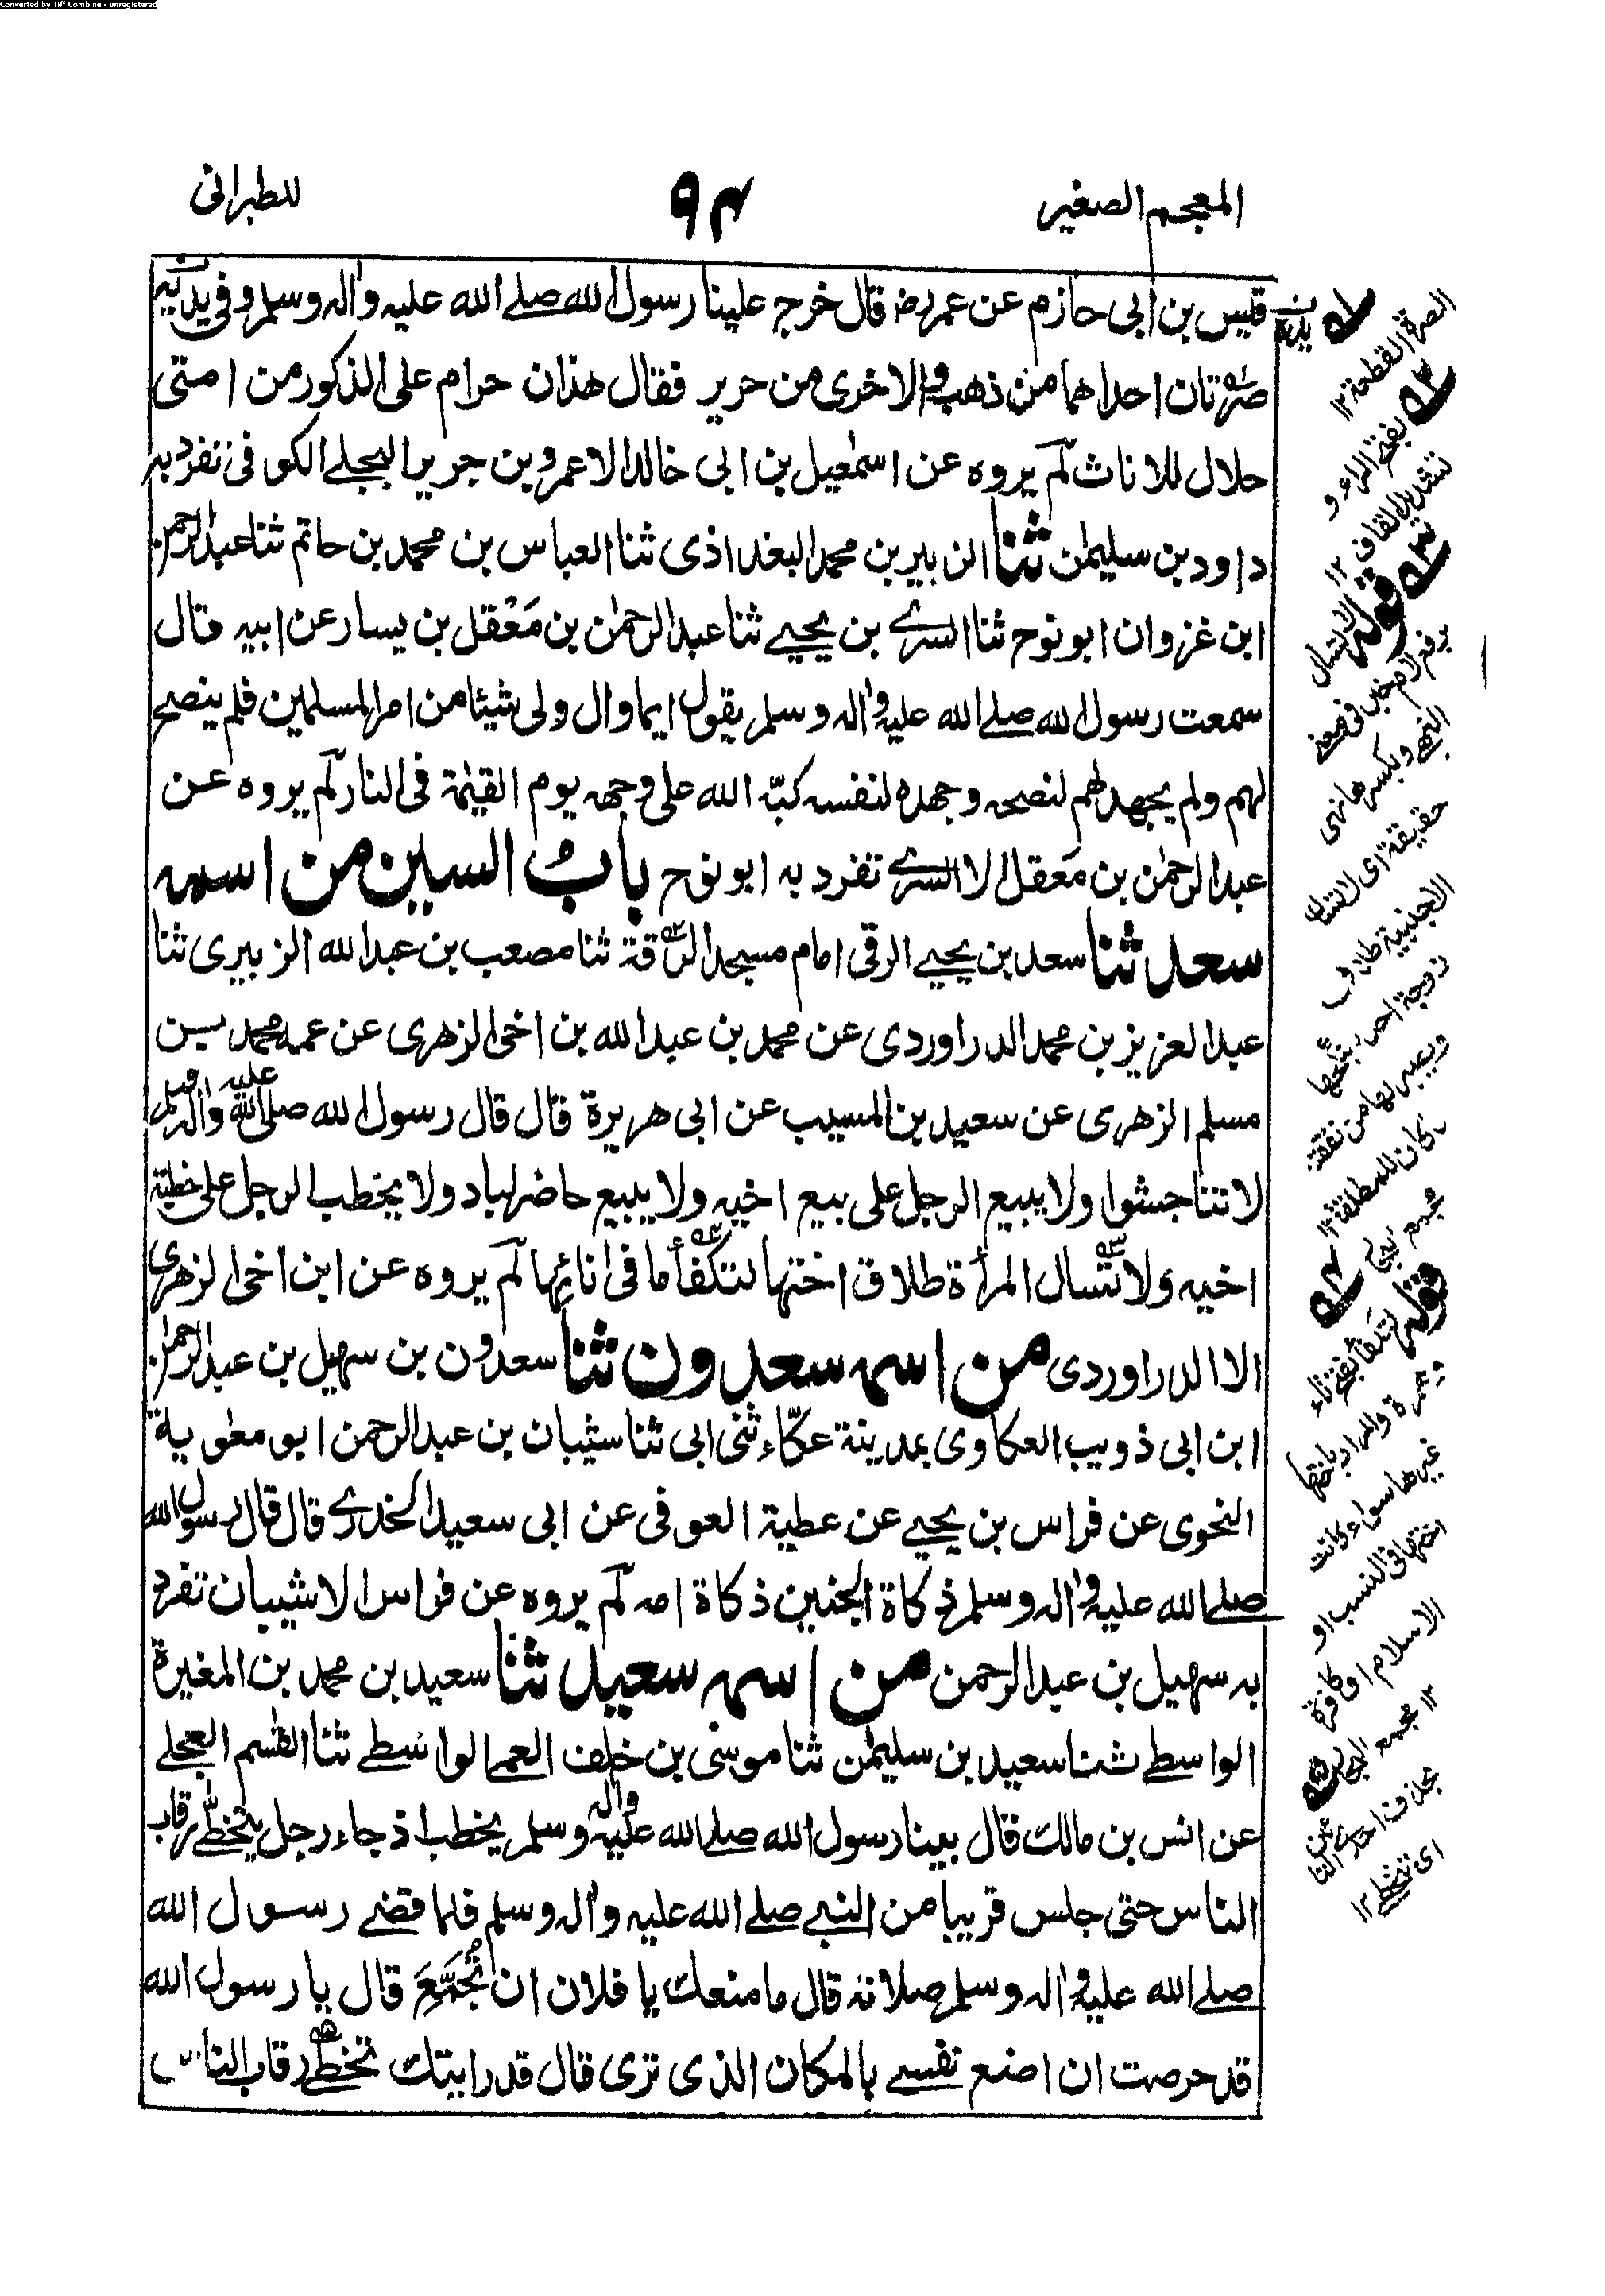 Converted by Tiff Combine - unregistered
المعجم الصغير ٩٣ للطبرانی
قیس بن ابی حازم عن عمر رض قال خرج علینا رسول الله صلے الله علیه واٰله وسلم وفی یدیه
صرتان احداهما من ذهب والاخری من حریر فقال هذان حرام علی الذکور من امتی
حلال للاناث لم یروه عن اسمٰعیل بن ابی خالد الا عمرو بن جریر البجلے الکوفی تفرد به
داود بن سلیمٰن ثنا الزبیر بن محمد البغداذی ثنا العباس بن محمد بن حاتم ثنا عبد الرحمٰن
ابن غزوان ابو نوح ثنا السرے بن یحیے ثنا عبد الرحمٰن بن مَعْقل بن یسار عن ابیه قال
سمعت رسول الله صلے الله علیه واٰله وسلم یقول ایما وال ولی شیئا من امر المسلمین فلم ینصح
لهم ولم یجهد لهم لنصحه وجهده لنفسه کبّه الله علی وجهه یوم القیٰمة فی النار لم یروه عن
عبد الرحمٰن بن مَعقل الا السرے تفرد به ابو نوح بابُ السین من اسمه
سعد ثنا سعد بن یحیے الرقی امام مسجد الرَّاقة ثنا مصعب بن عبد الله الزبیری ثنا
عبد العزیز بن محمد الدراوردی عن محمد بن عبد الله بن اخی الزهری عن عمه محمد بن
مسلم الزهری عن سعید بن المسیب عن ابی هریرة قال قال رسول الله صلی الله علیه واٰله وسلم
لا تناجشوا ولا یبیع الرجل علی بیع اخیه ولا یبیع حاضر لباد ولا یخطب الرجل علی خطبة
اخیه ولا تسال المرأة طلاق اختها لتکفأ ما فی انائها لم یروه عن ابن اخی الزهری
الا الدراوردی من اسمه سعدون ثنا سعدون بن سهیل بن عبد الرحمٰن
ابن ابی ذویب العکاوی بمدینة عکّاء ثنی ابی ثنا شیبان بن عبد الرحمن ابو معٰویة
النحوی عن فراس بن یحیے عن عطیة العوفی عن ابی سعید الخدرے قال قال رسول الله
صلے الله علیه واٰله وسلم ذکاة الجنین ذکاة امه لم یروه عن فراس الا شیبان تفرد
به سهیل بن عبد الرحمن من اسمه سعید ثنا سعید بن محمد بن المغیرة
الواسطے ثنا سعید بن سلیمٰن ثنا موسٰی بن خلف العمی الواسطے ثنا القٰسم العجلے
عن انس بن مالک قال بینا رسول الله صلے الله علیه واٰله وسلم یخطب اذ جاء رجل یتخطّے رقاب
الناس حتی جلس قریبا من النبے صلے الله علیه واٰله وسلم فلما قضے رسول الله
صلے الله علیه واٰله وسلم صلاته قال ما منعک یا فلان ان تُجَمِّعَ قال یا رسول الله
قد حرصت ان اضع نفسے بالمکان الذی تری قال قد رایتک تخطے رقاب الناس
یدیه
الصرة القطعة ١٢
بفتح الراء و
تشدید القاف ١٢
قوله لا تسال
برفع لام خبر فی معنے
النهے وبکسرها نهی
حقیقة ای لا تسال
الاجنبیة طلاق
زوجة احد ینکحها
ویصیر لها من نفقته
ما کان للمطلقة ١٢
قوله لتکفأ بفتح تاء
وهمزة والمراد باختها
غیرها سواء کانت
اختها فی النسب او
الاسلام او کافرة
١٢ مجمع البحار
بحذف احدی التا
ئین
ای تتخطے ١٢